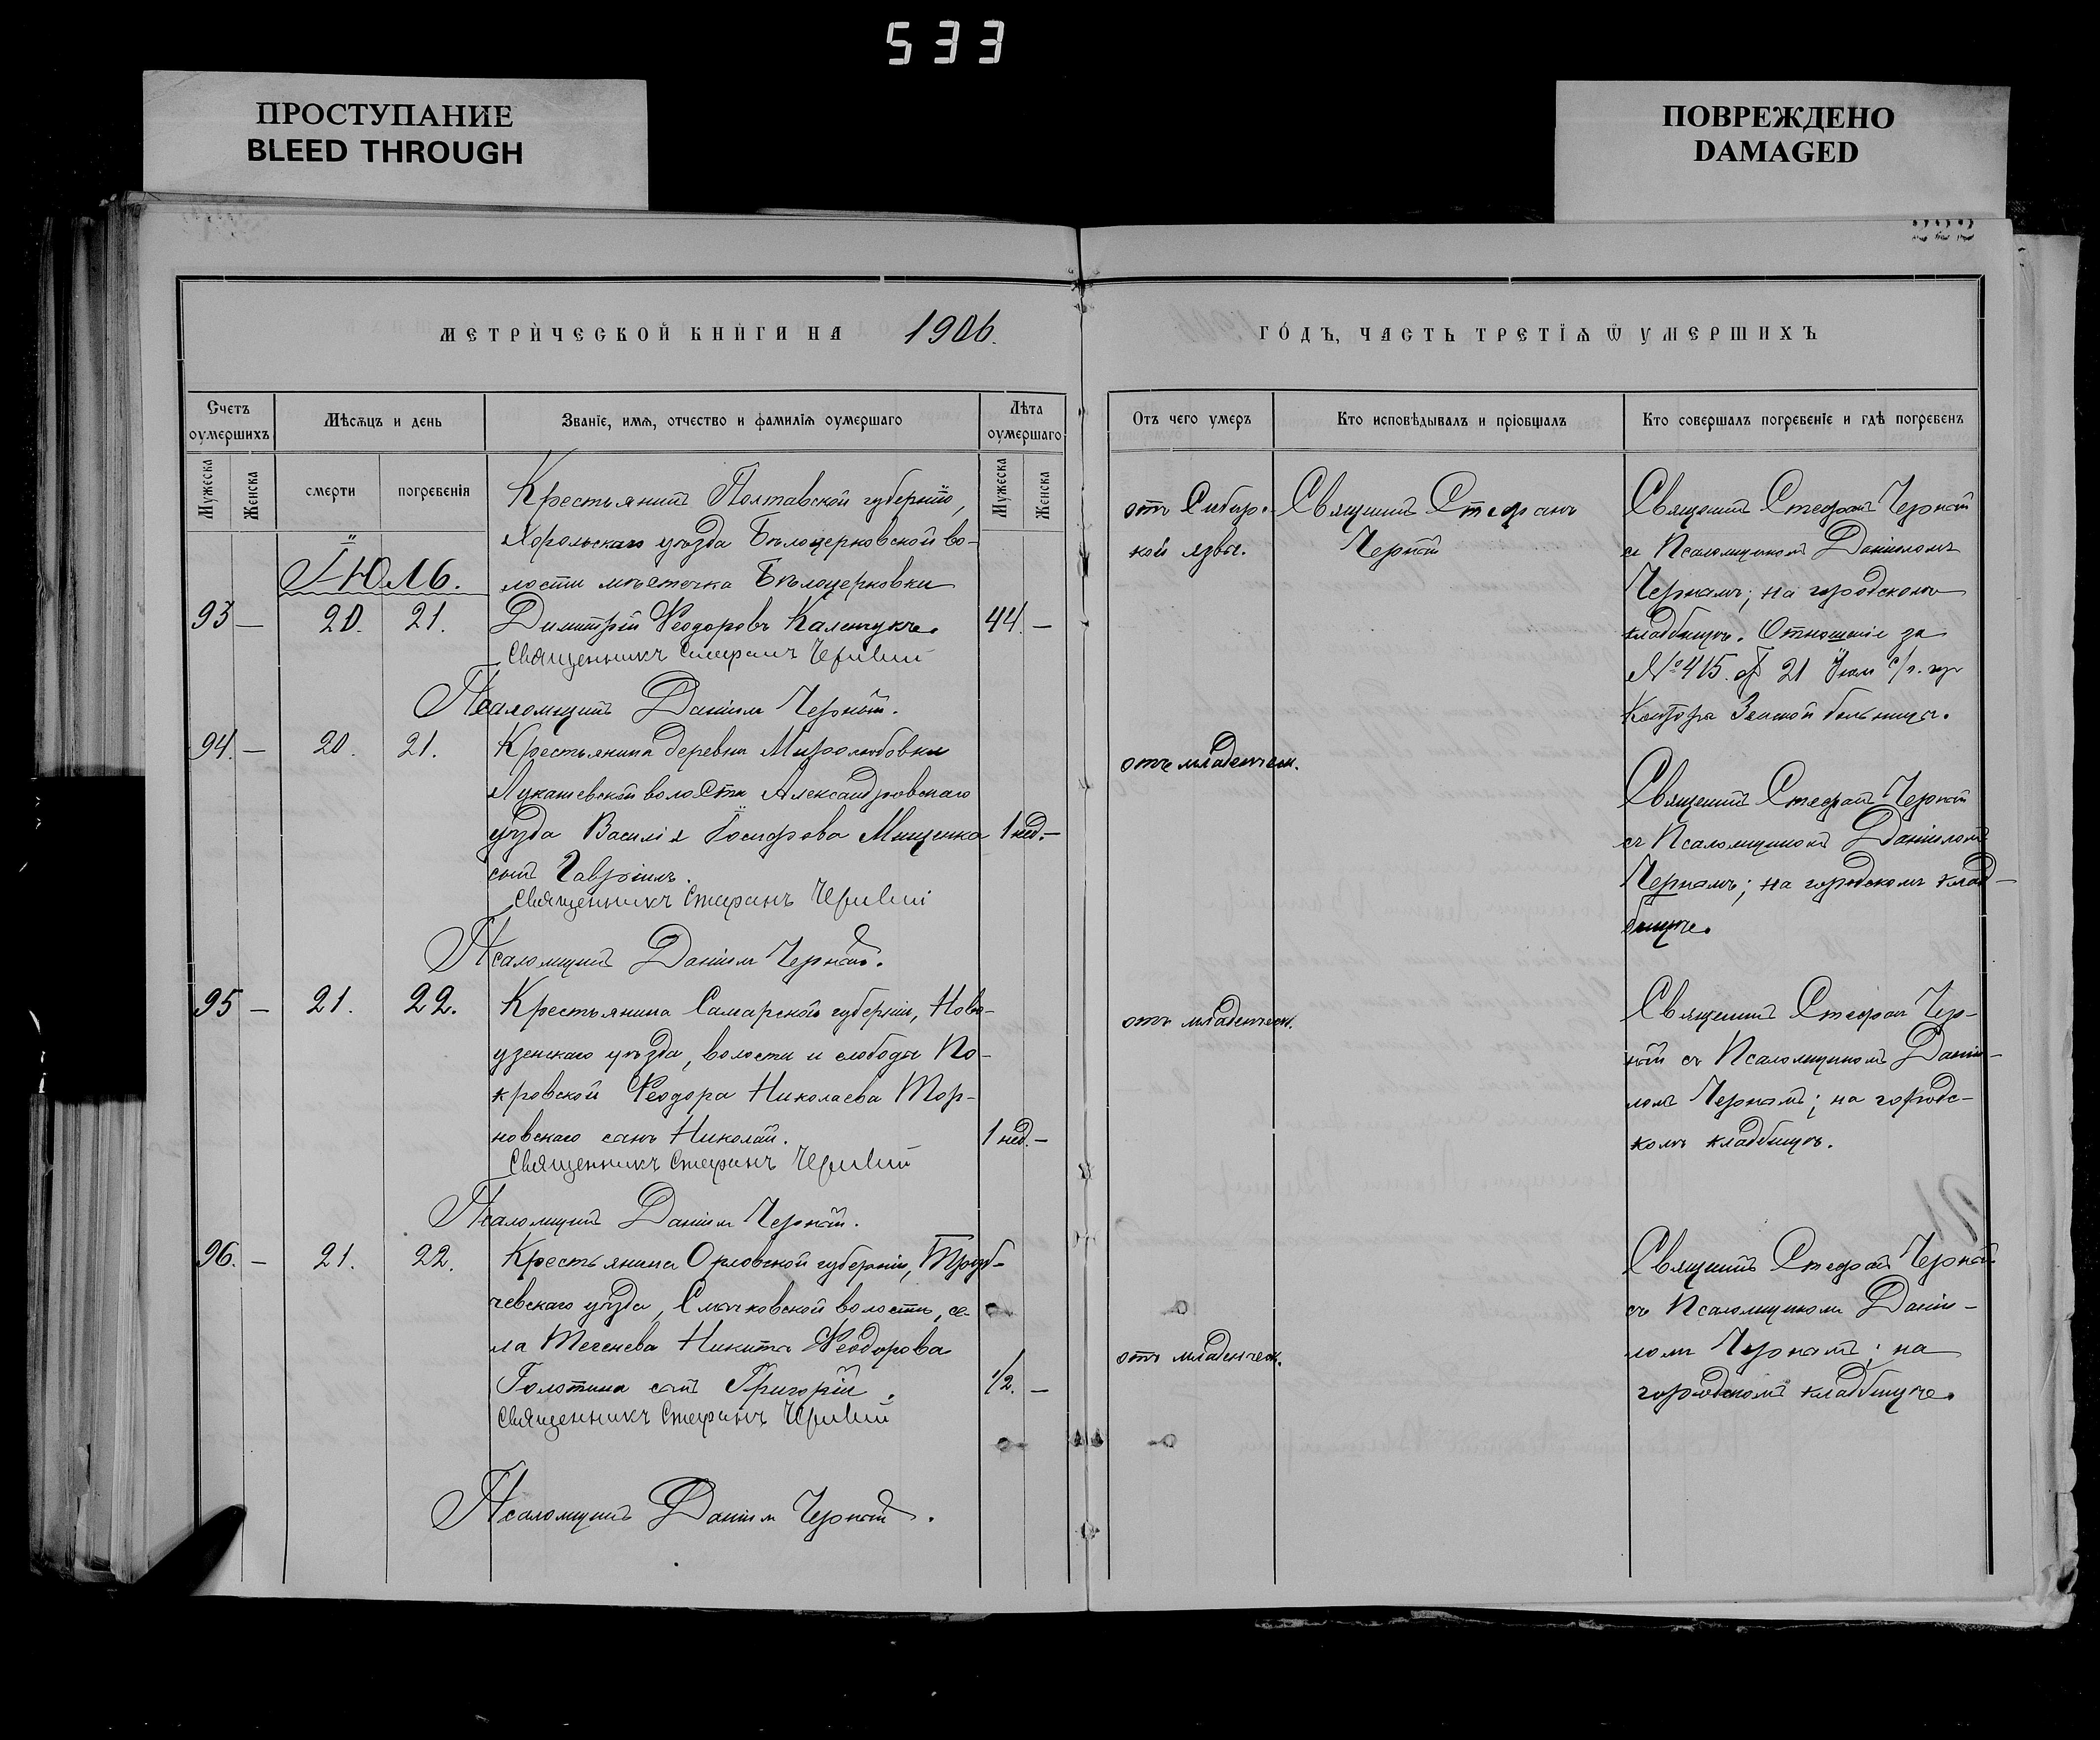 533
ПРОСТУПАНИЕ
BLEED THROUGH
ПОВРЕЖДЕНО
DAMAGED
МЕТРИ́ЧЕСКОЙ КНИ́ГИ НА 1906.
ГО́ДЪ, ЧАСТЬ ТРЕТІѦ Ѿ УМЕРШИХЪ
Счетъ оумершихъ
Мѣсѧцъ и день
Званіе, имѧ, отчество и фамиліѧ оумершаго
Лѣта оумершаго
Отъ чего умеръ
Кто исповѣдывалъ и пріобщалъ
Кто совершалъ погребеніе и гдѣ погребенъ
Мужеска
Женска
смерти
погребенія
Мужеска
Женска
Іюль.
Крестьянинъ Полтавской губерніи,
Хорольскаго уѣзда Бѣлоцерковской во-
лости мѣстечка Бѣлоцерковки
93 — 20. 21. Димитрій Ѳеодоровъ 44. —
Священникъ Стефанъ Черный
Псаломщикъ Даніилъ Чернай.
отъ Сибир-
кой язвы.
Священникъ Стефанъ
Чернай
Священникъ Стефанъ Чернай
съ Псаломщикомъ Даніиломъ
Чернамъ; на городскомъ
кладбищѣ. Отношеніе за
№ 415. от 21 Іюля с/г.
Контора Земской больницы.
94. — 20. 21. Крестьянина деревни Миролюбовки
Лукашевской волости Александровскаго
уѣзда Василія Іосифова Мищенка 1 нед. —
сынъ Гавріилъ.
Священникъ Стефанъ Черный
Псаломщикъ Даніилъ Чернай.
отъ младенческ.
Священникъ Стефанъ Чернай
съ Псаломщикомъ Даніиломъ
Чернамъ; на городскомъ клад-
бищѣ.
95 — 21. 22. Крестьянина Самарской губерніи, Ново-
узенскаго уѣзда, волости и слободы По-
кровской Ѳеодора Николаева Тор-
новскаго сынъ Николай. 1 нед. —
Священникъ Стефанъ Черный
Псаломщикъ Даніилъ Чернай.
отъ младенческ.
Священникъ Стефанъ Чер-
най съ Псаломщикомъ Даніи-
ломъ Чернамъ; на городс-
комъ кладбищѣ.
96. — 21. 22. Крестьянина Орловской губерніи, Труб-
чевскаго уѣзда, волости, се-
ла Никита Ѳеодорова
сынъ Григорій. 1/2. —
Священникъ Стефанъ Черный
Псаломщикъ Даніилъ Чернай.
отъ младенческ.
Священникъ Стефанъ Чернай
съ Псаломщикомъ Даніи-
ломъ Чернамъ; на
городскомъ кладбищѣ.